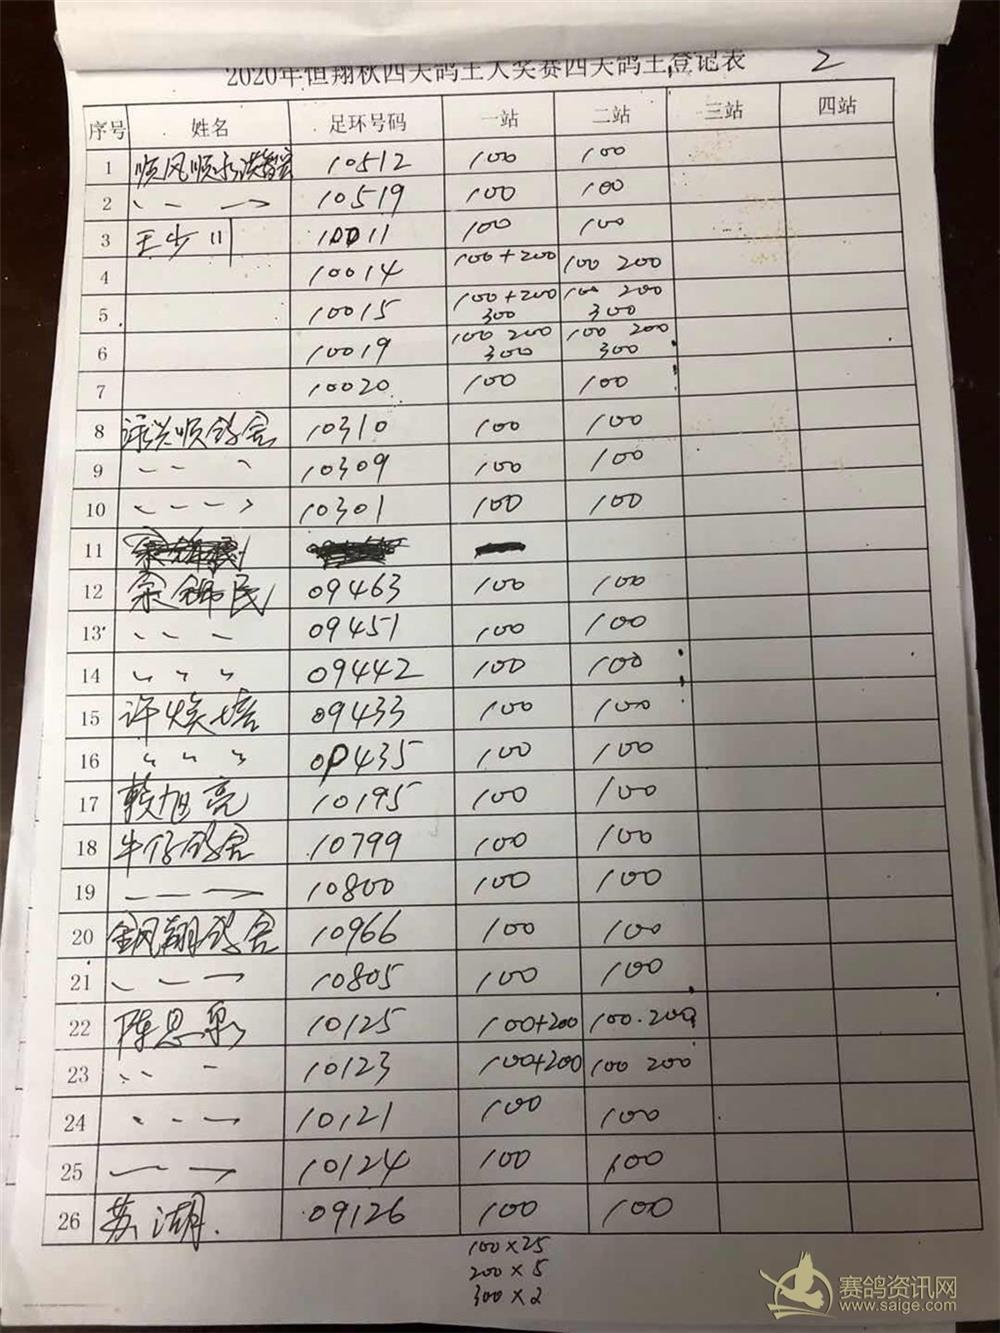 2020年恒翔秋四关鸽王大奖赛四关鸽王登记表 2
序号 姓名 足环号码 一站 二站 三站 四站
1 顺风顺水 10512 100 100
2 〃 〃 → 10519 100 100
3 王少川 10011 100 100
4 10014 100+200 100 200
5 10015 100+200 300 100 200 300
6 10019 100 200 300 100 200 300
7 10020 100 100
8 顺鸽舍 10310 100 100
9 10309 100 100
10 10301 100 100
11
12 余锦民 09463 100 100
13 09451 100 100
14 09442 100 100
15 许焕培 09433 100 100
16 09435 100 100
17 赖旭亮 10195 100 100
18 牛仔鸽舍 10799 100 100
19 10800 100 100
20 翔鸽舍 10966 100 100
21 10805 100 100
22 陈思泉 10125 100+200 100.200
23 10123 100+200 100 200
24 10121 100 100
25 10124 100 100
26 苏湖. 09126 100 100
100×25
200×5
300×2
赛鸽资讯网
www.saige.com